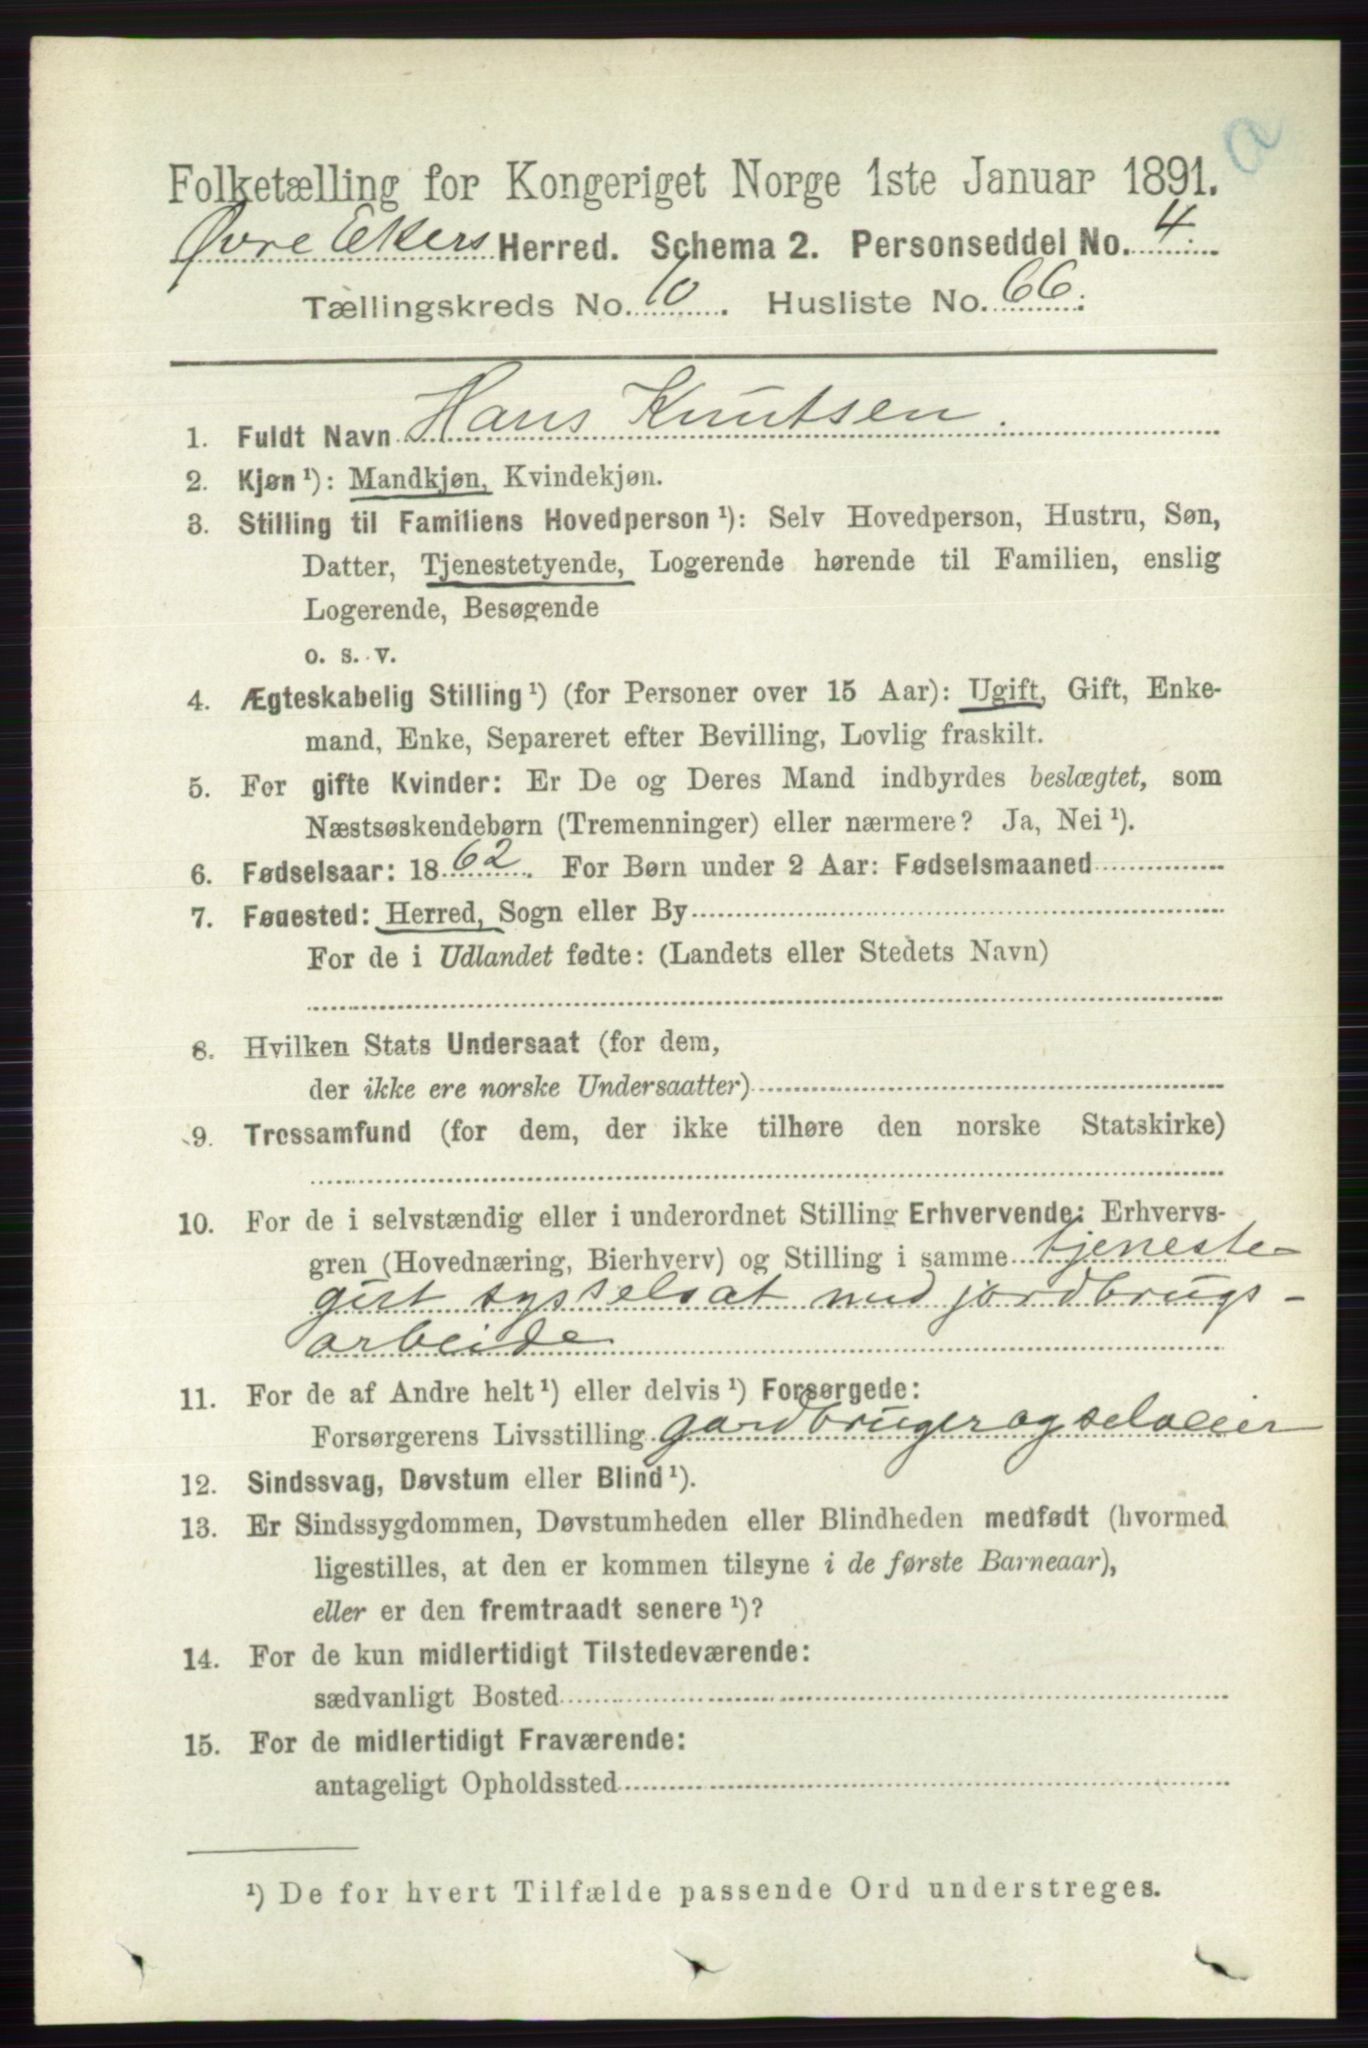 a
Folketælling for Kongeriget Norge 1ste Januar 1891.
Øvre Ekers Herred. Schema 2. Personseddel No. 4.
Tællingskreds No. 10. Husliste No. 66.
1. Fuldt Navn Hans Knutsen.
2. Kjøn ¹): Mandkjøn, Kvindekjøn.
3. Stilling til Familiens Hovedperson ¹): Selv Hovedperson, Hustru, Søn,
Datter, Tjenestetyende, Logerende hørende til Familien, enslig
Logerende, Besøgende
o. s. v.
4. Ægteskabelig Stilling ¹) (for Personer over 15 Aar): Ugift, Gift, Enke-
mand, Enke, Separeret efter Bevilling, Lovlig fraskilt.
5. For gifte Kvinder: Er De og Deres Mand indbyrdes beslægtet, som
Næstsøskendebørn (Tremenninger) eller nærmere? Ja, Nei ¹).
6. Fødselsaar: 1862. For Børn under 2 Aar: Fødselsmaaned
7. Fødested: Herred, Sogn eller By
For de i Udlandet fødte: (Landets eller Stedets Navn)
8. Hvilken Stats Undersaat (for dem,
der ikke ere norske Undersaatter)
9. Trossamfund (for dem, der ikke tilhøre den norske Statskirke)
10. For de i selvstændig eller i underordnet Stilling Erhvervende: Erhvervs-
gren (Hovednæring, Bierhverv) og Stilling i samme tjeneste-
gut sysselsat med jordbrugs-
arbeide
11. For de af Andre helt ¹) eller delvis ¹) Forsørgede:
Forsørgerens Livsstilling gardbruger og selveier
12. Sindssvag, Døvstum eller Blind ¹).
13. Er Sindssygdommen, Døvstumheden eller Blindheden medfødt (hvormed
ligestilles, at den er kommen tilsyne i de første Barneaar),
eller er den fremtraadt senere ¹)?
14. For de kun midlertidigt Tilstedeværende:
sædvanligt Bosted
15. For de midlertidigt Fraværende:
antageligt Opholdssted
¹) De for hvert Tilfælde passende Ord understreges.